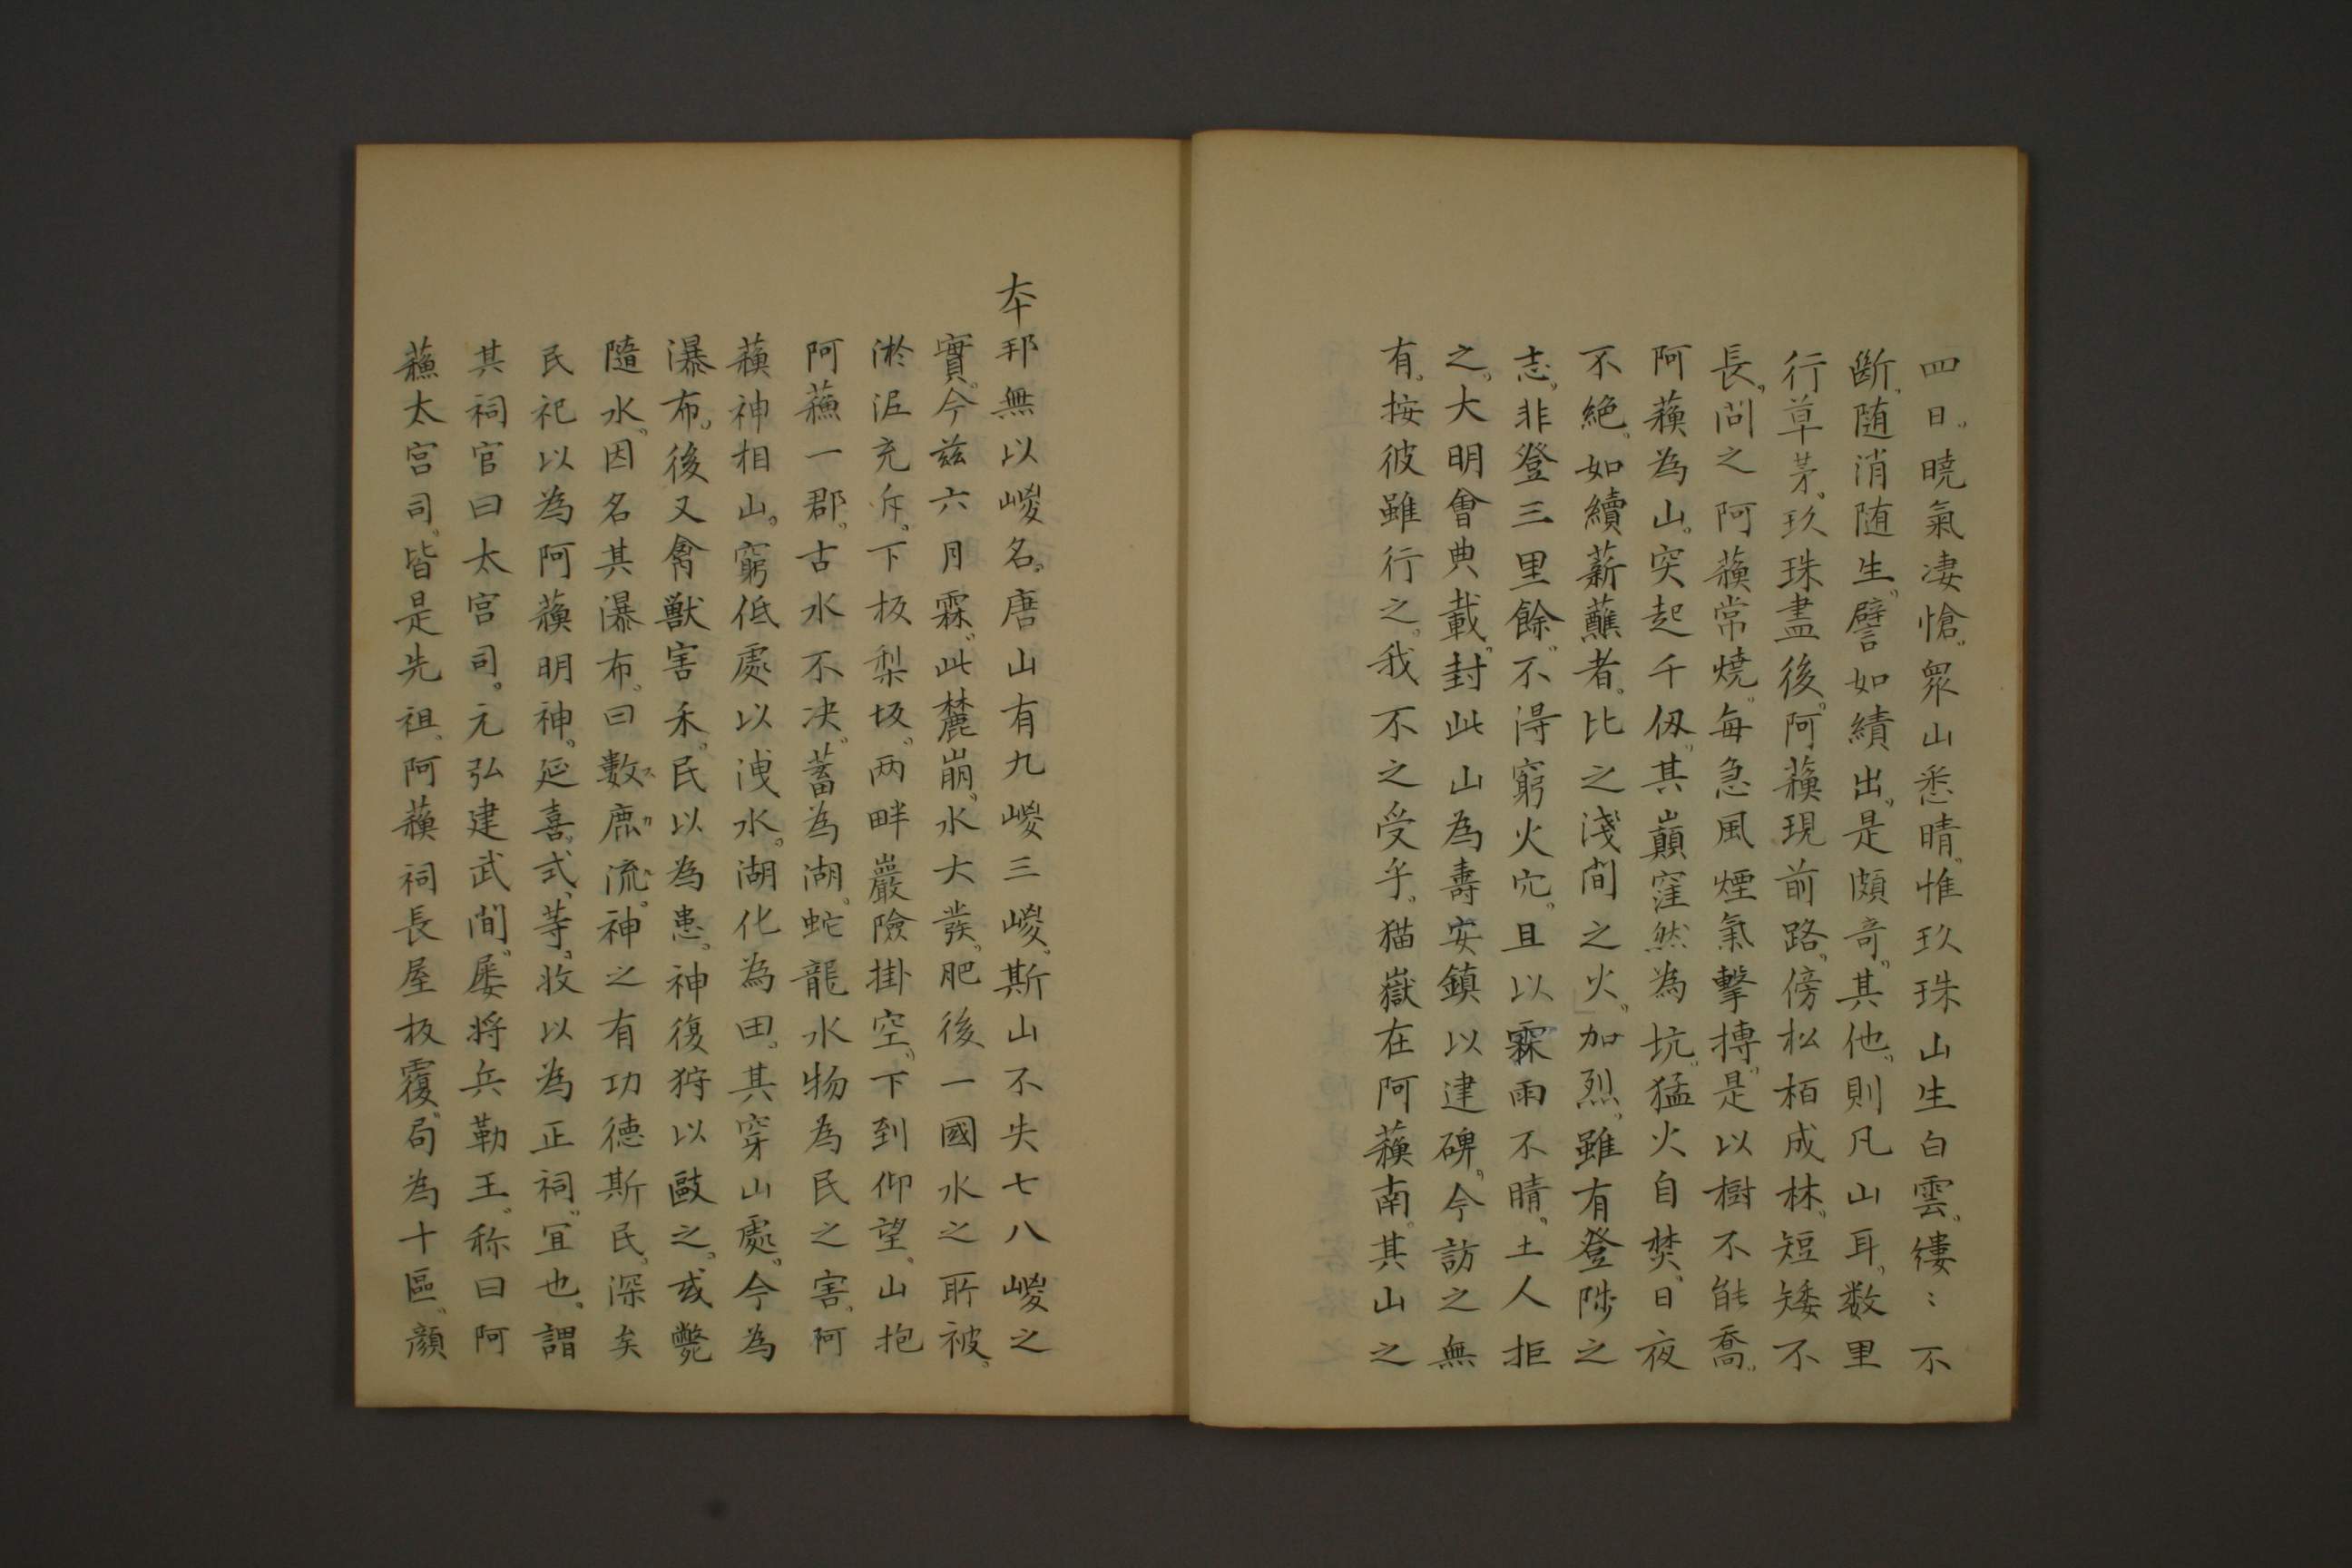 四日。曉氣凄愴。衆山悉晴。惟玖珠山生白雲。縷〻不
斷。随消随生。譬如績出。是頗奇。其他。則凡山耳。数里
行草茅。玖珠盡後。阿蘓現前路。傍松栢成林。短矮不
長。問之阿蘓常燒。每急風煙氣擊摶。是以樹不能喬。
阿蘓為山。突起千仭。其巓窪然為坑。猛火自焚。日夜
不絶。如續薪蘸者。比之淺間之火。加烈。雖有登陟之
志。非登三里餘。不淂窮火穴。且以霖雨不晴。土人拒
之。大明會典載。封此山為壽安鎮以建碑。今訪之無
有。按彼雖行之。我不之受乎。猫嶽在阿蘓南。其山之
本邦無以嵕名。唐山有九嵕三嵕。斯山不失七八嵕之
實。今兹六月霖。此麓崩。水大發。肥後一國水之所被。
淤泥充斥。下板梨坂。两畔巖險掛空。下到仰望。山抱
阿蘓一郡。古水不决。蓄為湖。蛇龍水物為民之害。阿
蘓神相山。窮低處以洩水。湖化為田。其穿山處。今為
瀑布。後又禽獸害禾。民以為患。神復狩以敺之。或斃
隨水。因名其瀑布。曰數鹿流。神之有功徳斯民。深矣
民祀以為阿蘓明神。延喜式等。收以為正祠。宜也。謂
其祠官曰太宫司。元弘建武間。屡将兵勤王。称曰阿
蘓太宫司。皆是先祖。阿蘓祠長屋板覆。局為十區。顔